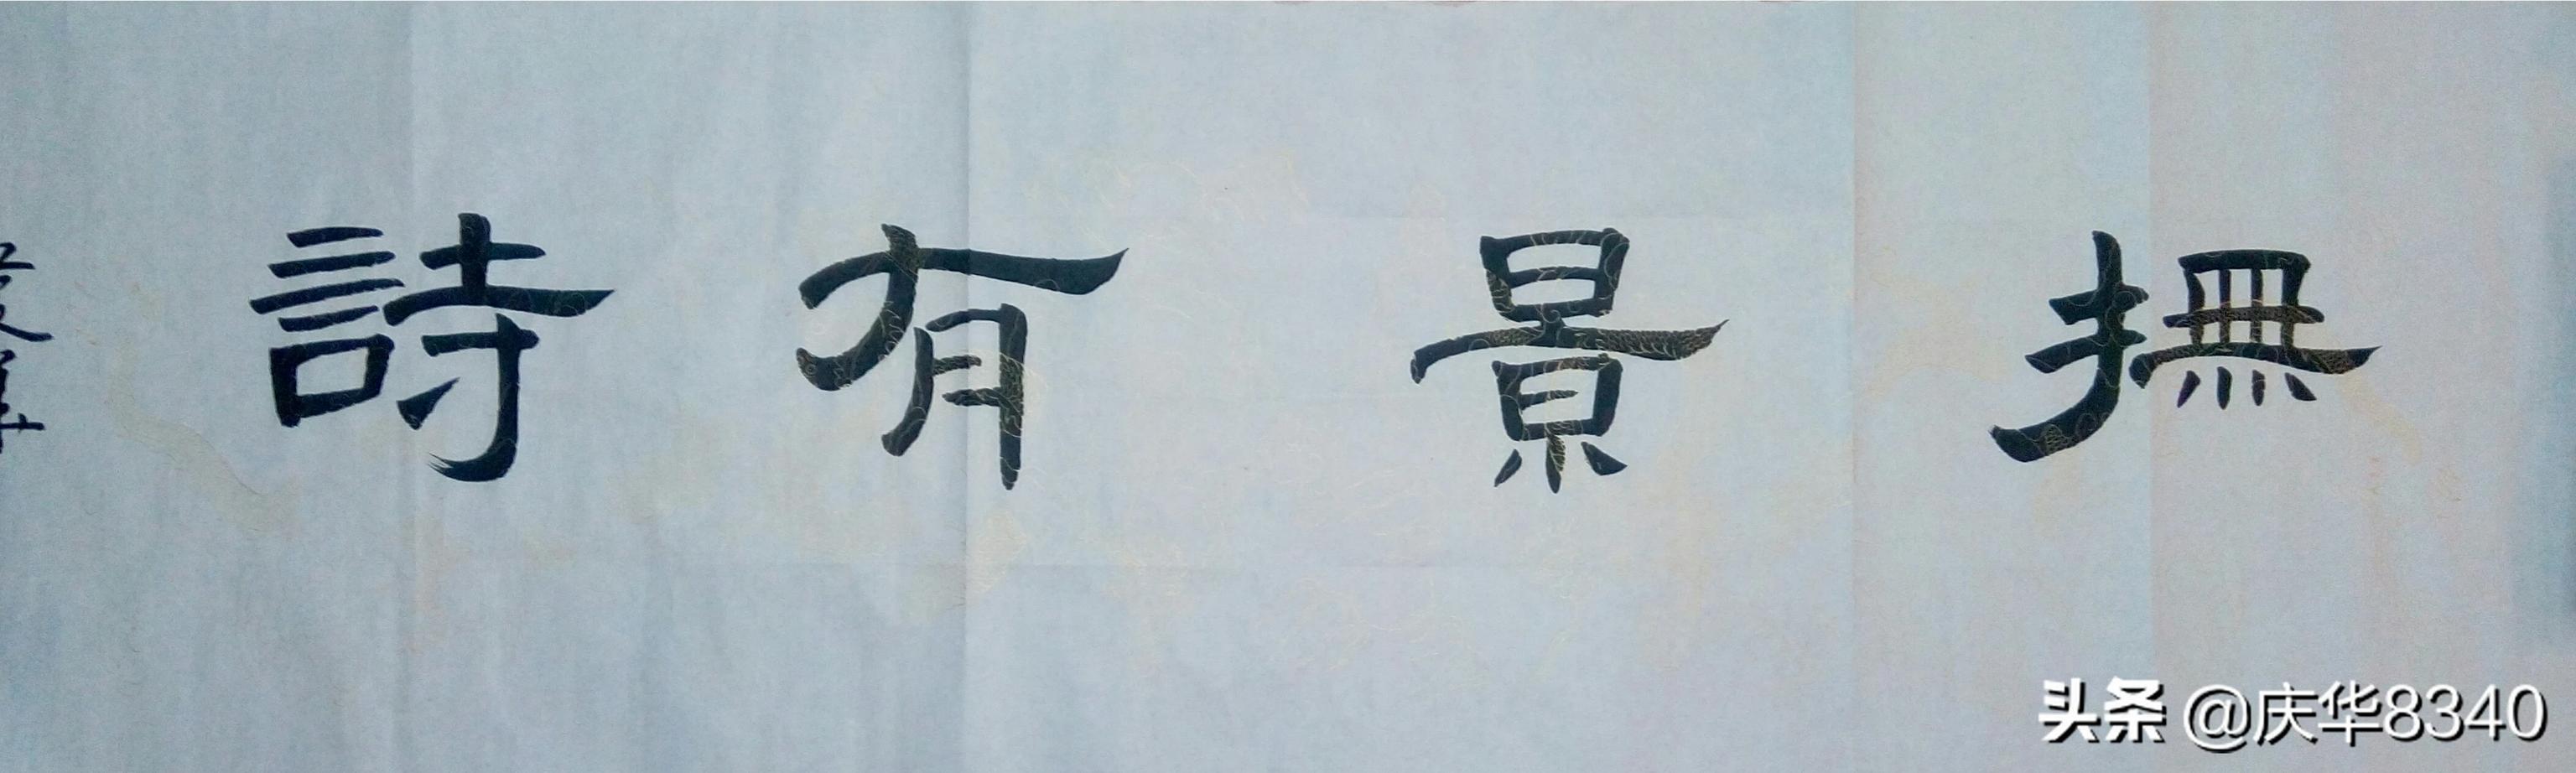 撫景有詩
头条 @庆华8340